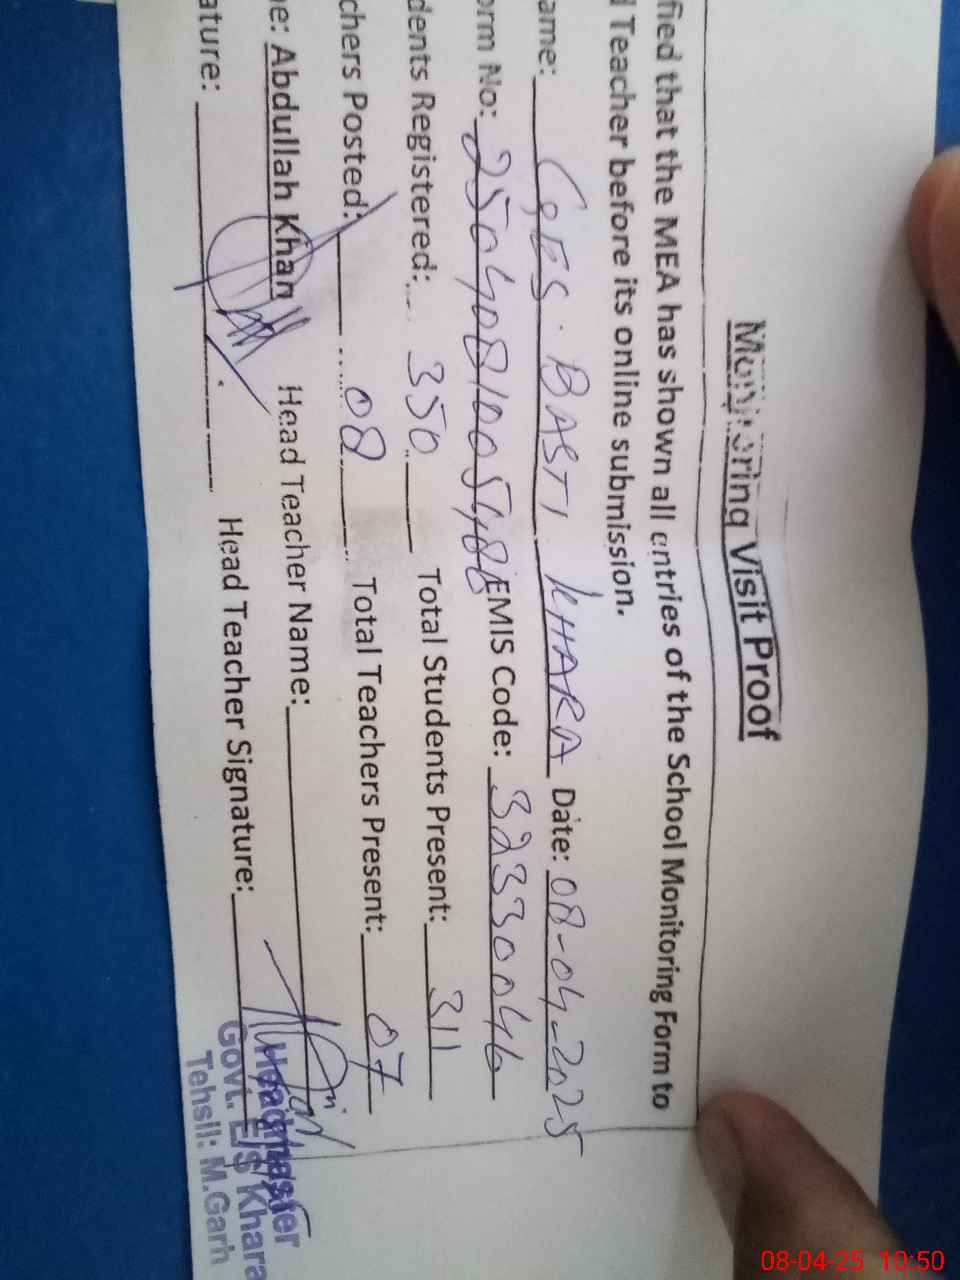 Monitoring Visit Proof
fied that the MEA has shown all entries of the School Monitoring Form to
Teacher before its online submission.
ame: GES. BASTI KHARA Date: 08-04-2025
orm No: EMIS Code: 32330046
dents Registered: 350 Total Students Present: 311
chers Posted: 08 Total Teachers Present: 07
e: Abdullah Khan Head Teacher Name:
ature: Head Teacher Signature:
Headmaster
Govt. E/S Khara
Tehsil: M.Garh
08-04-25 10:50